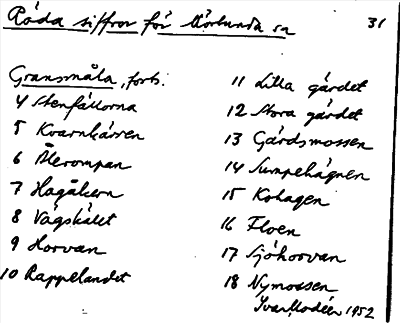 Röda siffror för Mörlunda sn
31
Gransmåla, forts.
4 Stenfällorna
5 Kvarnkärren
6 Ålerompan
7 Hagåkern
8 Vägskälet
9 Horvan
10 Rappelandet
11 Lilla gärdet
12 Stora gärdet
13 Gärdsmossen
14 Sumpehägnen
15 Kohagen
16 Floen
17 Sjöhorvan
18 Nymossen
Ivar Modéer 1952